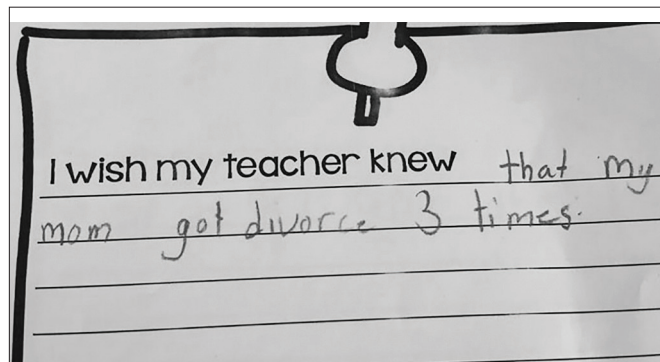 I wish my teacher knew that my
mom got divorce 3 times.